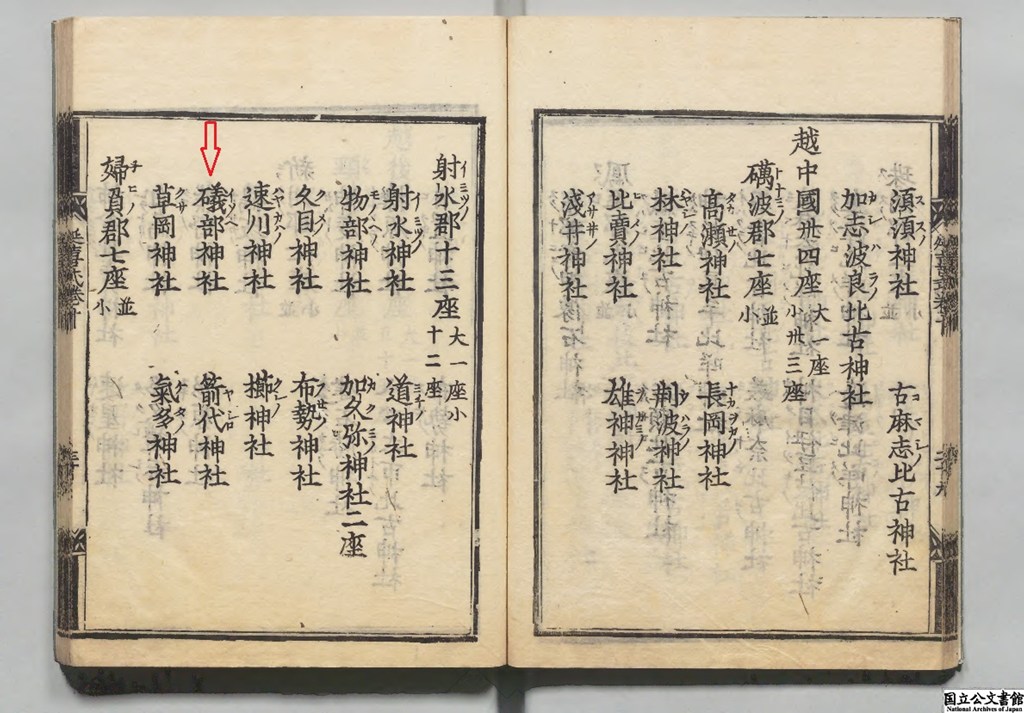 須須神社 古麻志比古神社
加志波良比古神社
越中國丗四座 大一座 小丗三座
礪波郡七座 並小
高瀬神社 長岡神社
林神社 荊波神社
比賣神社 雄神神社
淺井神社
射水郡十三座 大一座小十二座
射水神社 道神社
物部神社 加久弥神社二座
久目神社 布勢神社
速川神社 櫛神社
礒部神社 箭代神社
草岡神社 氣多神社
婦負郡七座 並小
国立公文書館
National Archives of Japan